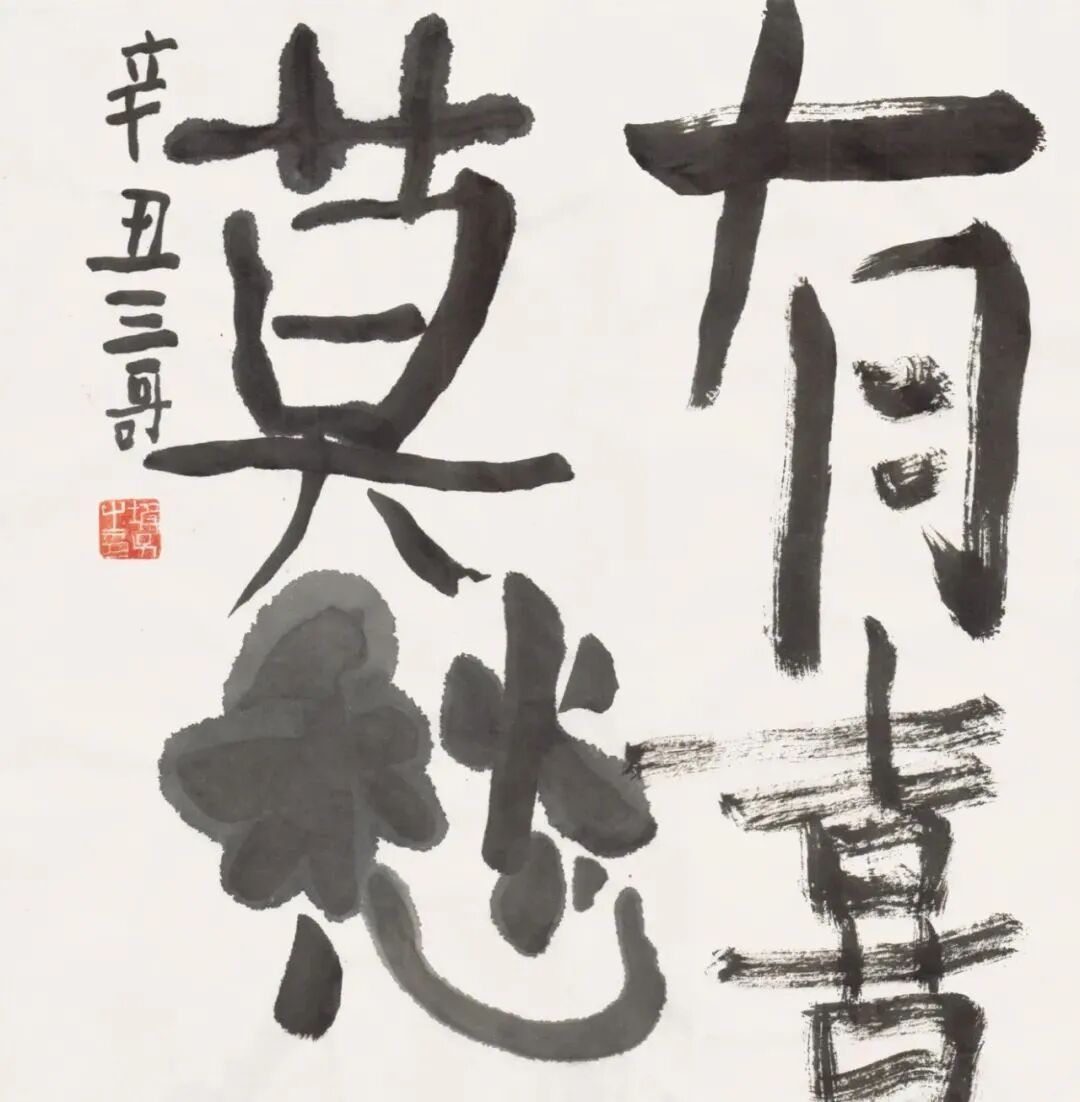 有喜
莫愁
辛丑三哥